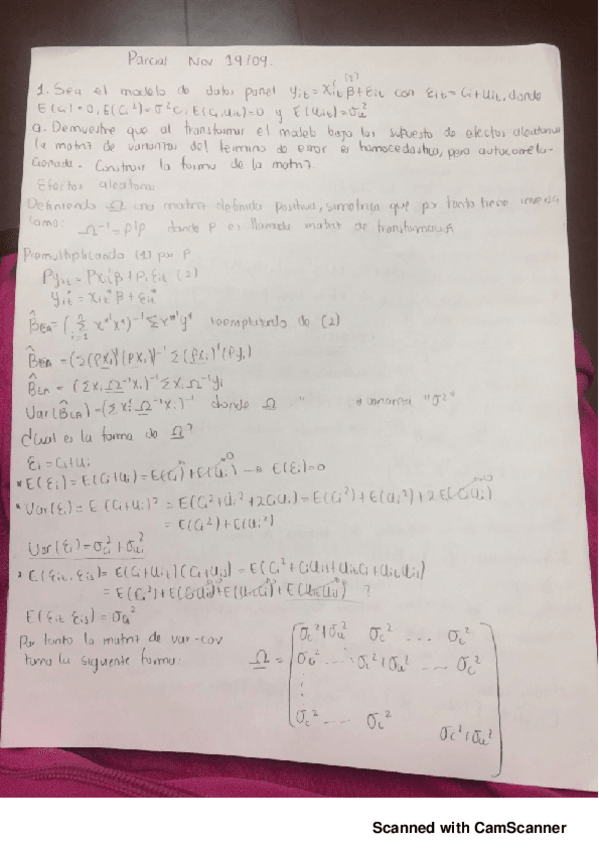 Parcial Nov 19/09.
1. Sea el modelo de datos panel yit = X'it β + εit (1) con εit = Ci + Uit, donde
E(Ci) = 0, E(Ci²) = σ²c, E(Ci,Uit) = 0 y E(Uit) = σu²
a. Demuestre que al transformar el modelo bajo los supuesto de efectos aleatorios
la matriz de varianzas del termino de error es homocedastica, pero autocorrela-
cionada. Construir la forma de la matriz.
Efectos aleatorios
Definiendo Ω una matriz definida positiva, simetrica que por tanto tiene inversa
como: Ω⁻¹ = P'P donde P es llamada matriz de transformación
Premultiplicando (1) por P
Pyit = PXi'β + Pi εit (2)
yit* = Xit* β + εit*
β̂EA = (Σ x*'x*)⁻¹ Σ x*'y* reemplazando de (2)
β̂EA = (Σ(PXi)'(PXi))⁻¹ Σ(PXi)'(Pyi)
β̂EA = (ΣXi Ω⁻¹Xi)⁻¹ ΣXi Ω⁻¹yi
Var(β̂EA) = (ΣXi' Ω⁻¹Xi)⁻¹ donde Ω " varianza "σ²"
¿Cual es la forma de Ω?
εi = Ci + Ui
* E(εi) = E(Ci+Ui) = E(Ci) + E(Ui) → E(εi) = 0
* Var(εi) = E(Ci+Ui)² = E(Ci² + Ui² + 2CiUi) = E(Ci²) + E(Ui²) + 2E(CiUi)
= E(Ci²) + E(Ui²)
Var(εi) = σc² + σu²
* E(εit, εis) = E(Ci+Uit)(Ci+Uis) = E(Ci² + CiUis + UitCi + UitUis)
= E(Ci²) + E(CiUis) + E(UitCi) + E(UitUis) ?
E(εit εis) = σc²
Por tanto la matriz de var-cov
toma la siguiente forma:
Ω = [σc²+σu² σc² ... σc²
σc² ... σc²+σu² ... σc²
⋮
σc² ... σc² σc²+σu²]
Scanned with CamScanner